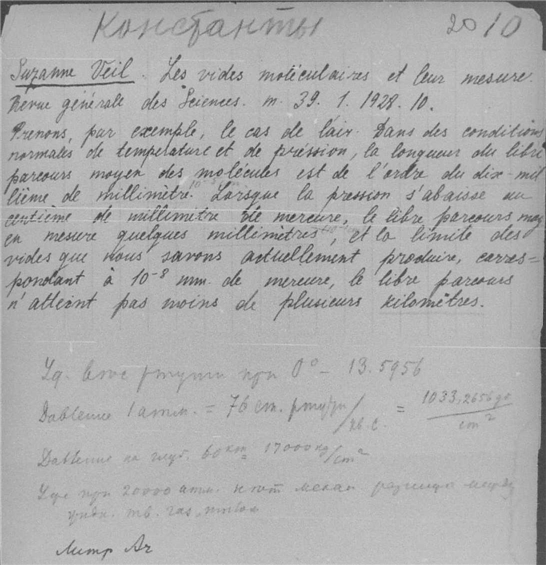 Константы 20 10
Suzanne Veil. Les vides moléculaires et leur mesure
Revue générale des Sciences. m. 39. 1. 1928. 10.
Prenons, par exemple, le cas de l'air. Dans des conditions
normales de température et de pression, la longueur du libre
parcours moyen des molécules est de l'ordre du dix-mil
lième de millimètre. Lorsque la pression s'abaisse au
centième de millimètre de mercure, le libre parcours moy
en mesure quelques millimètres, et la limite des
vides que nous savons actuellement produire, corres=
pondant à 10-8 mm. de mercure, le libre parcours
n'atteint pas moins de plusieurs kilomètres.
Уд. вес ртути при 0° - 13.5956
Давление 1 атм. = 76 cm. ртути/кв. с. = 1033,2656 gr/cm2
Давление на глуб. 60 km = 17000 kg/cm2
при 20000 атм. разницы между
тв. газ.
Литр Az